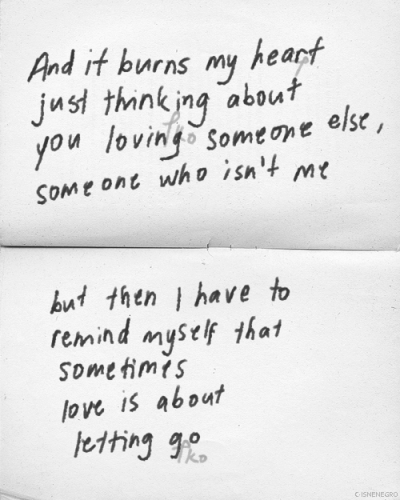 And it burns my heart
just thinking about
you loving someone else,
someone who isn't me
but then I have to
remind myself that
sometimes
love is about
letting go